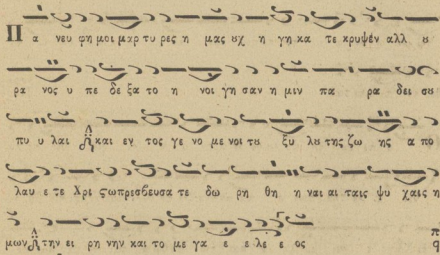 Π α νευ φη μοι μαρ τυ ρες η μας ȣχ η γη κα τε κρυψέν αλλ ȣ
ρα νος υ πε δε ξα το η νοι γη σαν η μιν πα ρα δει σȣ
πυ υ λαι και εν τος γε νο με νοι τȣ ξυ λȣ της ζω ης α πο
λαυ ε τε Χρι ϛω πρεσβευσα τε δω ρη θη η ναι αι ταις ψυ χαις η
μων την ει ρη νην και το με γα ε ε λε ε ος